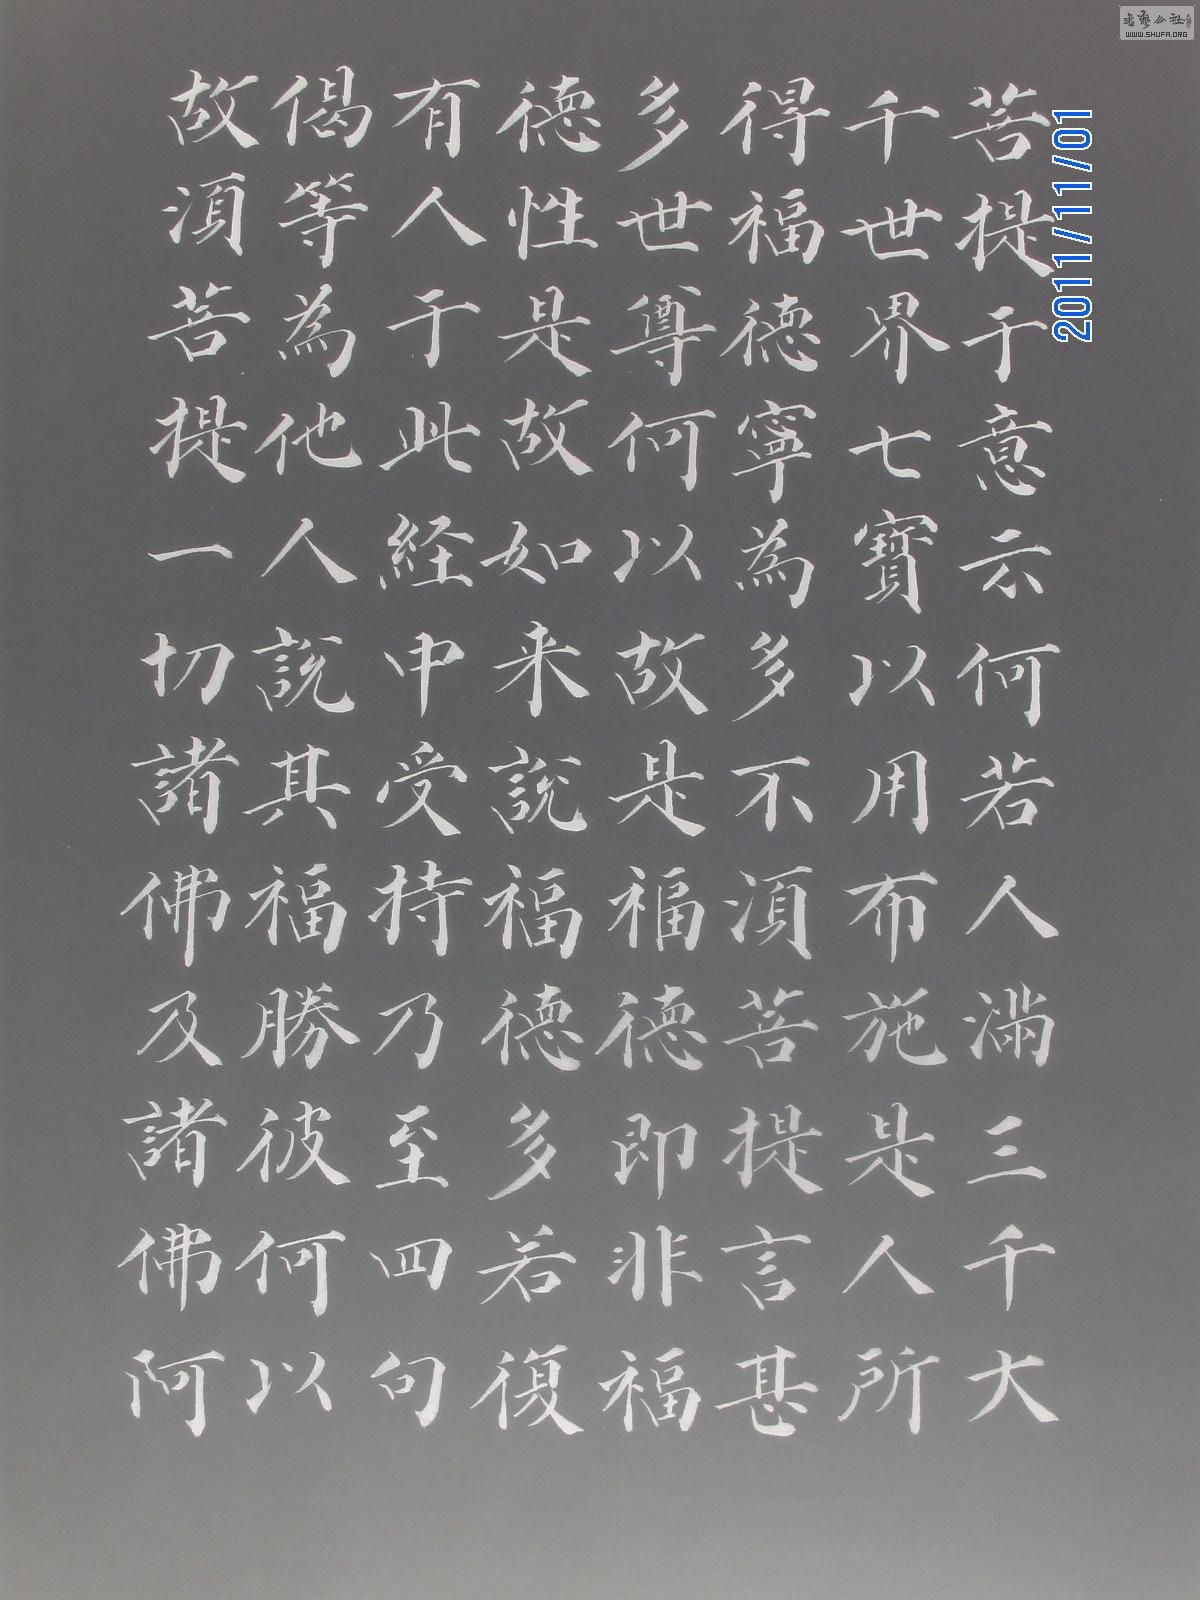 菩提于意云何若人滿三千大
千世界七寶以用布施是人所
得福德寧為多不須菩提言甚
多世尊何以故是福德即非福
德性是故如来說福德多若復
有人于此経中受持乃至四句
偈等為他人說其福勝彼何以
故須菩提一切諸佛及諸佛阿
2011/11/01
書藝公社
WWW.SHUFA.ORG